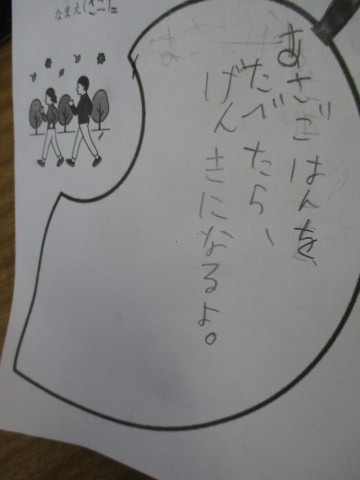 なまえ(
あさごはんを、
たべたら、
げんきになるよ。